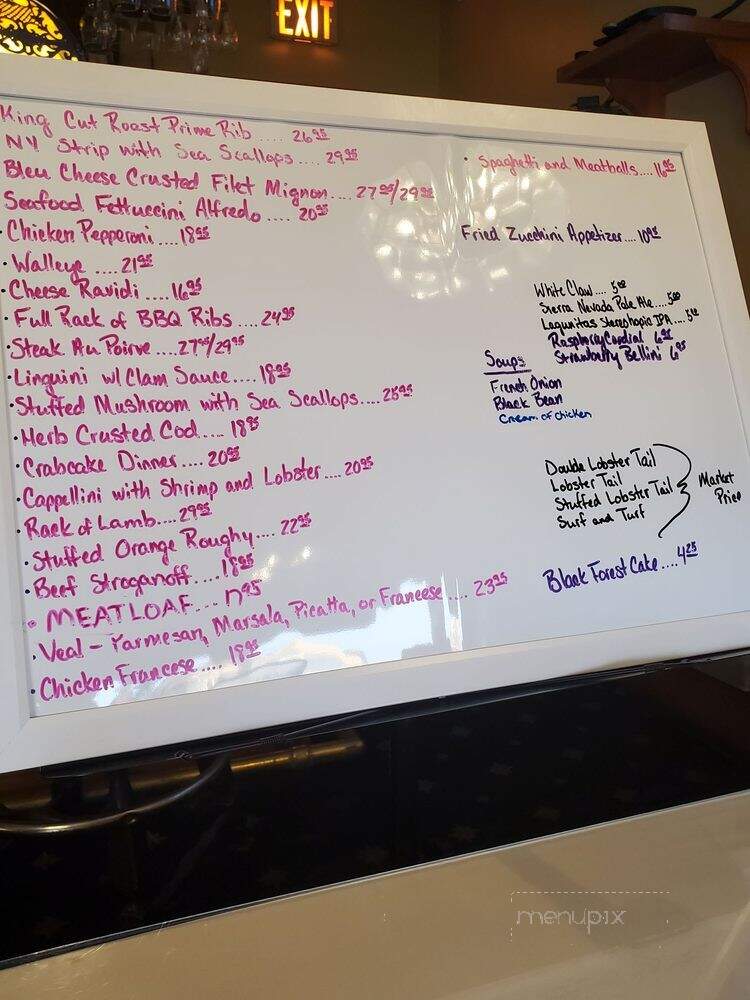 EXIT
King Cut Roast Prime Rib .... 26.95
NY Strip with Sea Scallops .... 29.95
Bleu Cheese Crusted Filet Mignon .... 27.95/29.95
Seafood Fettuccini Alfredo .... 20.95
· Chicken Pepperoni .... 18.95
· Walleye .... 21.95
· Cheese Ravidi .... 16.95
· Full Rack of BBQ Ribs .... 24.95
· Steak Au Poirve .... 27.95/29.95
· Linguini w/ Clam Sauce .... 18.95
· Stuffed Mushroom with Sea Scallops .... 25.95
· Herb Crusted Cod .... 18.95
· Crabcake Dinner .... 20.95
· Cappellini with Shrimp and Lobster .... 20.95
· Rack of Lamb .... 29.95
· Stuffed Orange Roughy .... 22.95
· Beef Stroganoff .... 18.95
· MEATLOAF .... 17.95
· Veal - Parmesan, Marsala, Picatta, or Francese .... 23.95
· Chicken Francese .... 18.95
· Spaghetti and Meatballs .... 16.95
Fried Zucchini Appetizer .... 10.95
White Claw .... 5.00
Sierra Nevada Pale Ale .... 5.00
Lagunitas Stereohopic IPA .... 5.00
Raspberry Cordial 6.95
Strawberry Bellini 6.95
Soups
French Onion
Black Bean
Cream of chicken
Double Lobster Tail
Lobster Tail
Stuffed Lobster Tail
Surf and Turf
Market
Price
Black Forest Cake .... 4.25
menupix